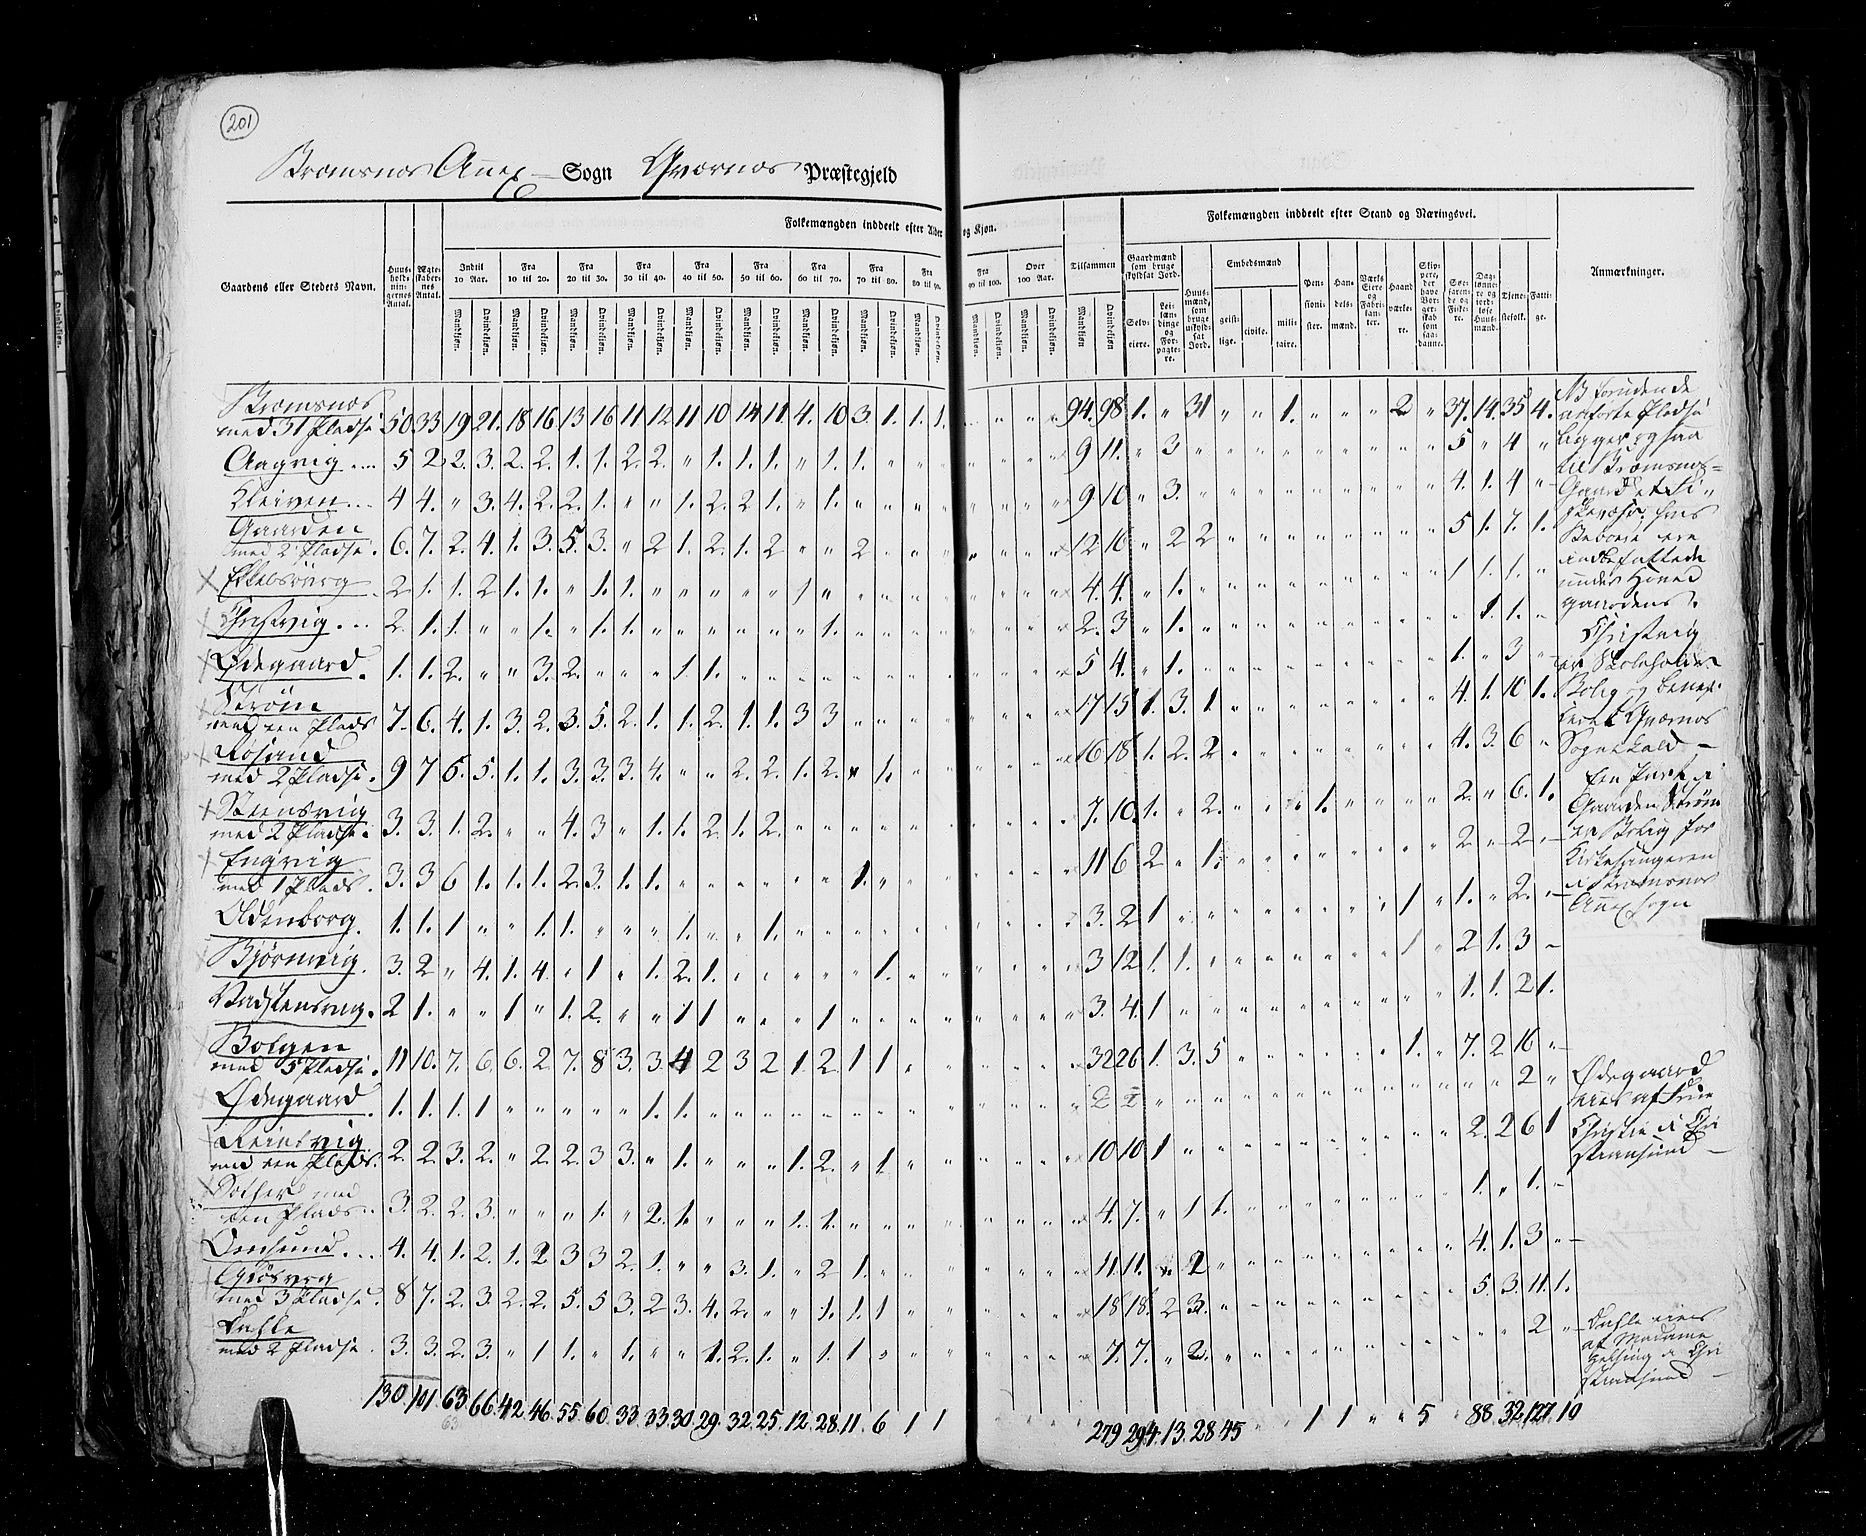 201
Bremsnæs Anex Sogn Qværnæs Præstegjeld
Folkemængden inddeelt efter Alder og Kjøn.
Folkemængden inddeelt efter Stand og Næringsvei.
Gaardens eller Stedets Navn.
Huusholdningernes Antal.
Ægteskabernes Antal.
Indtil 10 Aar.
Fra 10 til 20.
Fra 20 til 30.
Fra 30 til 40.
Fra 40 til 50.
Fra 50 til 60.
Fra 60 til 70.
Fra 70 til 80.
Fra 80 til 90.
Fra 90 til 100.
Over 100 Aar.
Tilsammen
Mandkjøn. Qvindekjøn.
Gaardmænd som bruge skyldsat Jord.
Selveiere.
Leilændinge og Forpagtere.
Huusmænd, som bruge uskyldsat Jord.
Embedsmænd
geistlige.
civile.
militaire.
Pensionister.
Handelsmænd.
Værks Eiere og Fabrikanter.
Haandværkere.
Søefarende og Fiskere.
Daglønnere og jordløse Huusmænd.
Tjenestefolk.
Fattige.
Anmærkninger.
Bremsnæs
med 31 Pladse 50 33 19 21. 18 16 13 16 11 12 11 10 14 11. 4. 10 3. 1. 1. 1. 94. 98 1. " 31 " " 1. " " " 2 " 37. 14. 35 4.
Aagvig 5 2 2. 3. 2. 2. 1. 1. 2. 2. " 1. 1. 1. " 1. 1. 9 11. " 3 5 " 4 "
Kleiven 4 4. " 3. 4. 2. 2. 1. " " 1. 2. 2. 1. " 1. 9 10 " 3. 4. 1. 4 "
Gaarden
med 2 Pladse. 6. 7. 2. 4. 1. 3. 5. 3. " 2 1. 2. 1. 2 " " 2 12 16 " 2 2 5 1. 7. 1.
2. 1. 1. 2 1. 1. " 1. 1. 4. 4. " 1. 1 1. 1. "
2. 1. 1. " " 1. " 1. 1. 2. 3 " 1. 1. 1. "
Ødegaard. 1. 1. 2. " " 3. 2. " " " 1. 1. 5 4. " 1. 1. " 3
Strøm
med een Plads 7. 6. 4. 1. 3. 2. 3. 5. 2. 1. 1. 2. 1. 1. 3 3 17 15 1. 3. 1 4. 1. 10 1.
Rosand
med 2 Pladse. 9 7 6. 5. 1. 1. 3. 3. 3. 4. " " 2. 2. 1. 2. " 1. 16 18 1. 2. 2 4. 3. 6 "
Steensvig
med 2 Pladse. 3. 3. 1. 2. " " 4. 3 " 1. 1. 2. 1. 2. 7. 10. 1. " 2. 1. 2. " 6. 1.
Engvig
med 1 Plads. 3. 3 6 1. 1. 1. 2. 3. 1. 1. 1. 11 6 2 " 1. 2 " 2.
Oldenborg. 1. 1. 1 " " 1. 1. " " " 1. " " 1. 3. 2 1 1 " 1. " 2.
Bjørnvig. 3. 2 " 4. 1. 4. " 1 " 1. 2. 1. 1. 3 12 1. 1. 1 " 2 1. 3
Vadstensvig. 2 1. " " 1 " 1. 2. " " 1 1 " " " 1 3. 4. 1 1. 1. 2 1.
Bolgen
med 5 Pladse. 11 10. 7. 6. 6. 2 7. 8 3. 3. 4 2 3 2 1. 2. 1 1 32 26 1. 3. 5 1. " 7. 2 16
Ødegaard. 1. 1. 1. 1 " " " " " 1. 1. 2 2 2 "
Reinsvig
med een Plads. 2. 2. 3. 2. " 2. 2. 3 3. " 1. " " " 1. 2. " 1. 10 10 1 2. 2 6 1
med
een Plads. 3. 2. 2. 3. " " " 1. " 2. 1. " " " 1. 1. 4. 7. " 1 1. 1. " 1.
4. 4. 1. 2. 1. 2 3 3 2. 1. " " 3. 1. " 2 1. 11. 11. 4. 1. 3
med 3 Pladse. 8 7. 2. 3. 2. 2. 5. 5 3. 2 3. 4. 2. " " 1. 1. 1 18 18. 2 3. 5. 3. 11. 1.
Dahle
med 2 Pladse. 3. 3. 2. 3. " 1 1. " 1. " " 1. 2. 1. " 1. 1 7. 7. " 2. 2
130 101 63. 66. 42. 46. 55. 60. 33. 33. 30. 29. 32. 25. 12. 28. 11. 6 1 1 279 294. 13. 28 45 1 1 " " 5 88. 32. 127. 10
63
NB foruden de
anførte Pladse
ligger ogsaa
til Bremsnæs
Gaard et Fi
skevær, hvis
Beboere ere
indbefattede
under Hoved
gaardens.
er Skoleholder
Bolig og
Qværnæs
Sognekald
Een Part i
Gaarden Strøm
er Bolig for
Kirkesangeren
i Bremsnæs
Anex sogn
Ødegaard
eies af Frue
Christie i Chri
stiansund
Dahle eies
af Madame
i Chri
stiansund